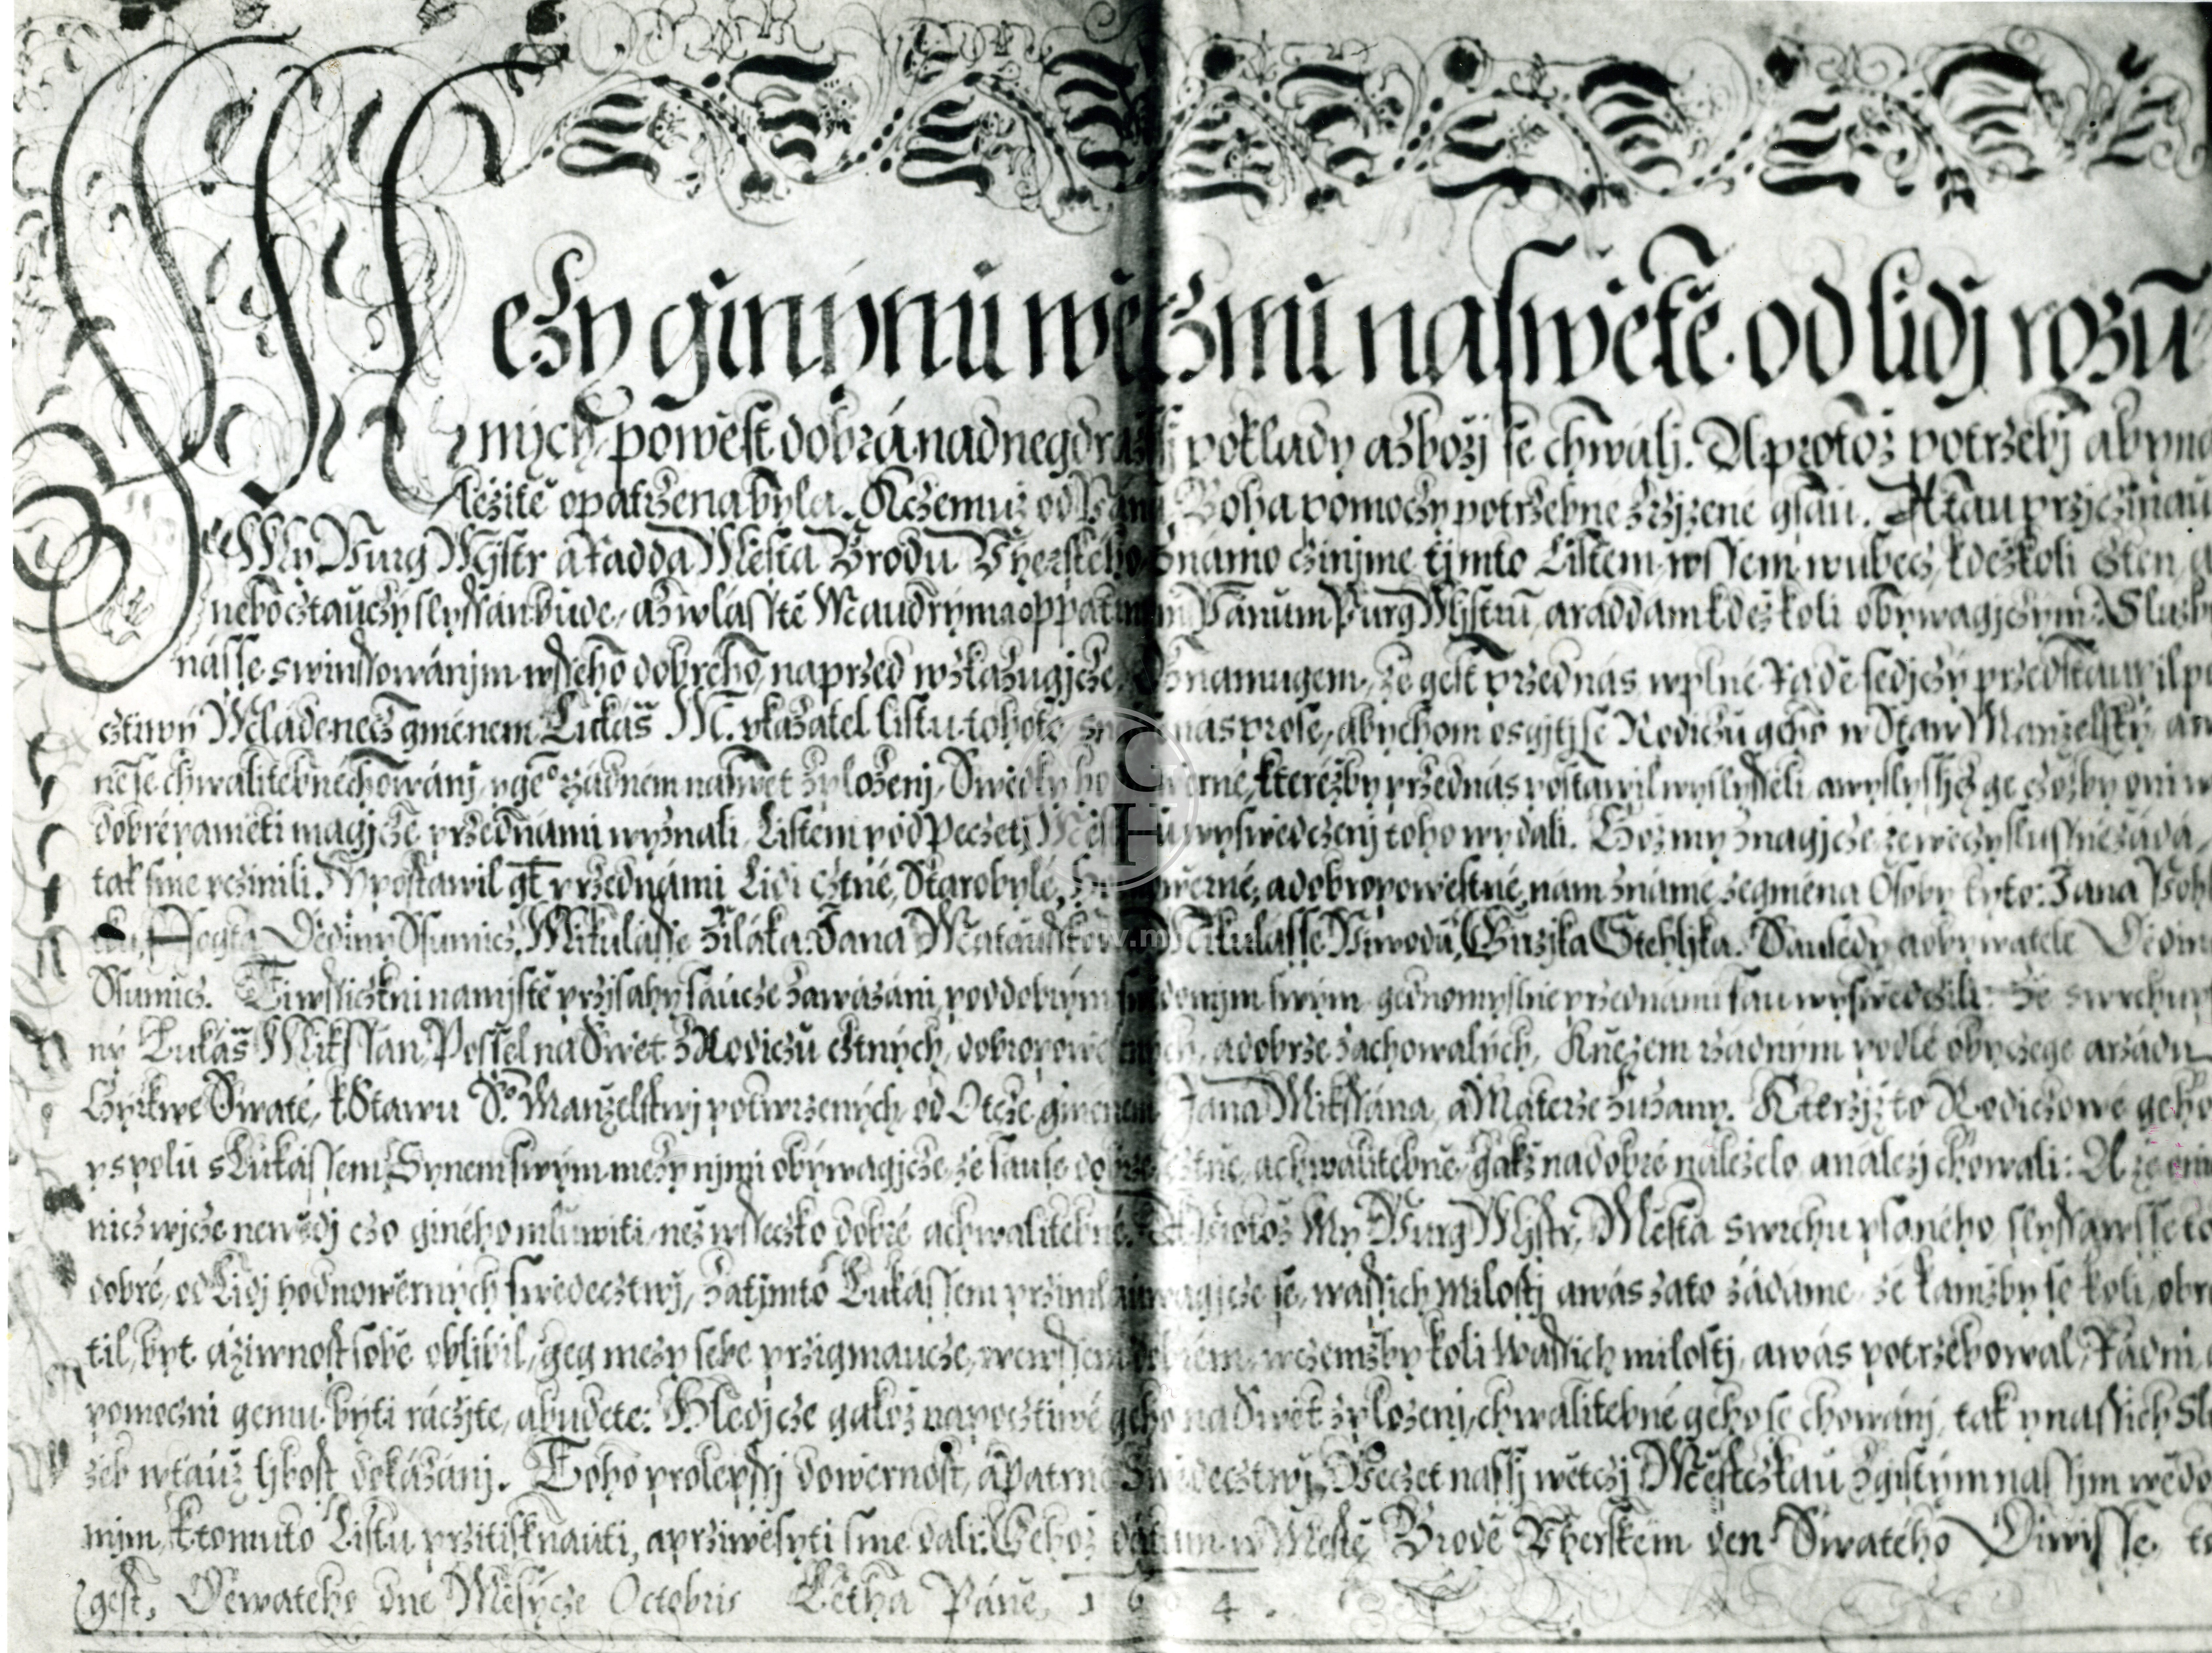 Mezy ginymi wěczmi na swětě od lidj rozū
mnych, powěst dobrá nad negdražssj poklady a zbožj se chwálj. A protož potrzebj aby ná
ležitě opatrzena byla. K czemuž od Pána Boha pomoczy potrzebné zrzjzené gsau. A tau przjczinau
My Purg Mystr a Radda Města Brodu Vherského známo czinjme tjmto Listem wssem wubecz, kdežkoli cžten,
nebo cžtauczy slyssán bude, a zwlásstě Maudrým a oppatrným Pánům Purg Mistrū, a raddám kdežkoli obywagjczym: Služb
násse s winssowánjm wsseho dobrého, naprzed wzkazugjcze Oznamugem, že gest przed nás w plné Radě sedjczy przedstaupil po
cztiwý Mládenecz gménem Lukáš M. vkazatel listu tohoto, nás prose, abychom o sgjtj se Rodiczů geho w Staw Manželský, a
ně se chwalitebné chowánj, y geº rzádném na Swět zplozenj, Swědky hodnowěrné, kteréžby przed nás postawil wyslysseli, a wyslyssjcz ge czožby oni w
dobré paměti magjcze przed námi wyznali, Listem pod Peczetj Města wyswědczenj toho wydali. Což my znagjcze že wěczy slussné žádá,
tak sme vczinili. Y postawil gt przed námi Lidi cztné, Starobylé, Hodnowěrné, a dobropowěstné, nám známé ze gména Osoby tyto: Jana
Fogta Dědiny Sumicz, Mikulásse Žiláka, Jana Mataussko Mikulásse Niwodu, Gužjka Stehljka. Sausedy a obywatele Dědin
Sumicz. Ti wssiczkni na mjstě przjsahy saucze zawázáni, pod dobrým swědomjm swým gednomyslně przed námi sau wyswědczili: Že swrchu ps
ný Lukáš Mikssan, Possel na Swět z Rodiczů cztných, dobropowěstných, a dobrze zachowalých, Knězem rzádným podlé obyczege a rzádu
Cyrkwe Swaté, k Stawu Sº Manželstwj potwrzených, od Otcze gménem Jana Mikssana, a Materze Zuzany. Kterzjžto Rodiczowé geho
y spolu s Lukássem Synem swým mezy njmi obýwagjcze, že sau se dobrze cztně, a chwalitebně, gakž na dobré náleželo a náležj chowali: A že o nich
nicz wjcze newědj czo giného mluwiti, než wsseczko dobré a chwalitebné. A protož My Purg Mystr, Města swrchu psaného slyssawsse to
dobré, od Lidj hodnowěrných swědecztwj, za tjmto Lukássem przimlauwagjcze se, wassich Milostj a wás za to žádáme, že kamžby se koli obrá
til, byt a žiwnost sobě oblibil, geg mezy sebe przigmaucze, we wssem dobrém, w czemžby koli Wassich milostj, a wás potrzebowal, Rádni
pomoczni gemu býti ráczjte, a budete: Hledjcze gakož na pocztiwé geho na Swět zplozenj, chwalitebné geho se chowánj, tak y na nassich Slu
žeb w tauž ljbost dokázánj. Toho pro lepssj dowěrnost, a patrné Swědecztwj, Peczet nassj wětczj Městczkau z gistým nassjm wědo
mjm, k tomuto Listu przitisknauti, a przjwěsyti sme dali. Gehož datum w Městě Brodě Vherském den Swatého Diwisse, to
gest, Dewatého dne Měsýcze Octobris Létha Páně, 1 6 4.